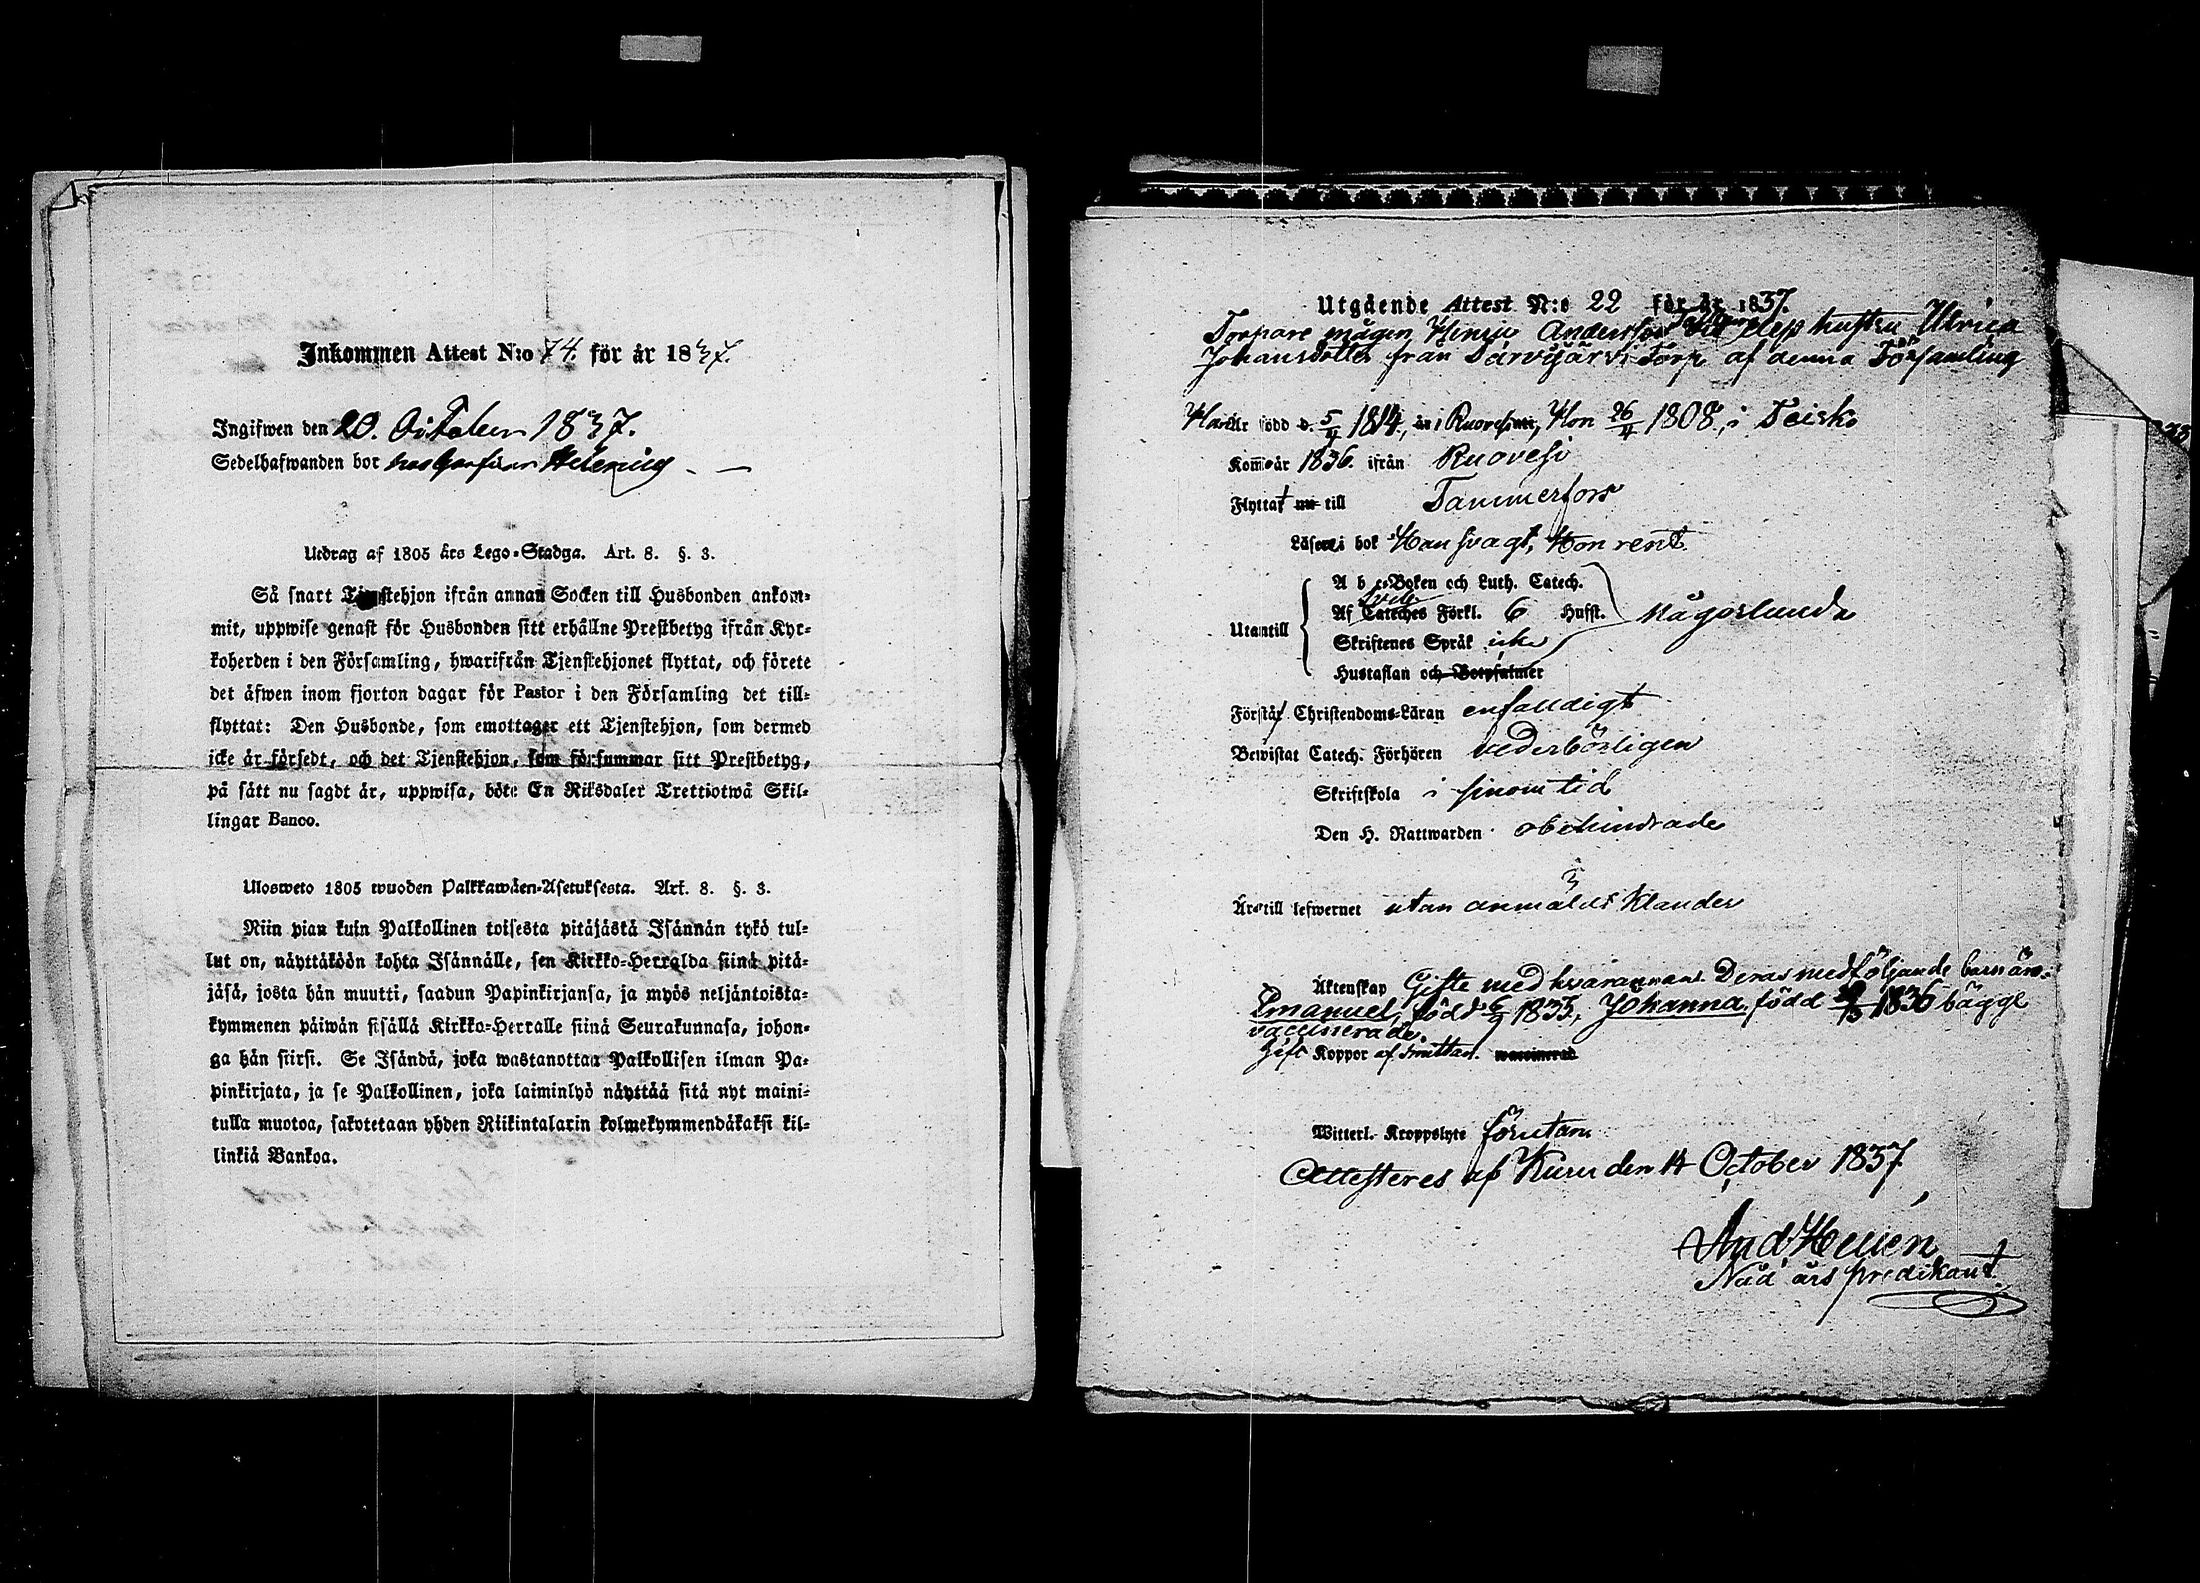 Inkommen Attest N:o 74. för år 1837.
Ingifwen den 20. October 1837.
Sedelhafwanden bor hos Helenius
Utdrag af 1805 års Lego-Stadga. Art. 8. §. 3.
Så snart Tjenstehjon ifrån annan Socken till Husbonden ankom-
mit, uppwise genast för Husbonden sitt erhållne Prestbetyg ifrån Kyr-
koherden i den Församling, hwarifrån Tjenstehjonet flyttat, och förete
det äfwen inom fjorton dagar för Pastor i den Församling det till-
flyttat: Den Husbonde, som emottager ett Tjenstehjon, som dermed
icke är försedt, och det Tjenstehjon, som försummar sitt Prestbetyg,
på sätt nu sagdt är, uppwisa, böte En Riksdaler Trettiotwå Skil-
lingar Banco.
Ulosweto 1805 wuoden Palkkawäen-Asetuksesta. Art. 8. §. 3.
Niin pian kuin Palkollinen toisesta pitäjästä Isännän tykö tul-
lut on, näyttäköön kohta Isännälle, sen Kirkko-Herralda siinä pitä-
jäsä, josta hän muutti, saadun Papinkirjansa, ja myös neljäntoista-
kymmenen päiwän sisällä Kirkko-Herralle siinä Seurakunnasa, johon-
ga hän siirsi. Se Isändä, joka wastanottaa Palkollisen ilman Pa-
pinkirjata, ja se Palkollinen, joka laiminlyö näyttää sitä nyt maini-
tulla muotoa, sakotetaan yhden Riikintalarin kolmekymmendäkaksi kil-
linkiä Bankoa.
Utgående Attest N:o 22 för år 1837.
Torpare mågen Henric Andersson dess hustru Ulrica
Johansdotter från Parvjärvi Torp af denna Församling
Han Är född d. 5/4 1814, i Ruovesi, Hon 26/4 1808, i Teisko
Kom år 1836. ifrån Ruovesi
Flyttat nu till Tammerfors
Läser i bok Han svagt, Hon rent
Utantill A b c-Boken och Luth. Catech.
Af Cateches Förkl. 6 Hufst. någorlunda
Skriftenes Språk icke
Hustaflan och Botpsalmer
Förstår Christendoms-Läran enfaldigt
Bewistat Catech. Förhören vederbörligen
Skriftskola i sinom tid
Den H. Nattwarden obehindrade
Äro till lefwernet utan anmäldt klander
Äktenskap Gifte med hvarannan. Deras medföljande barn äro:
Emanuel, född 6/9 1835, Johanna, född 1836 bägge
vaccinerade.
Koppor af Smittan. waccinerad
Witterl. Kroppslyte förutan
Attesteres af Kuru den 14 October 1837
And Helién
Nåd års predikant.